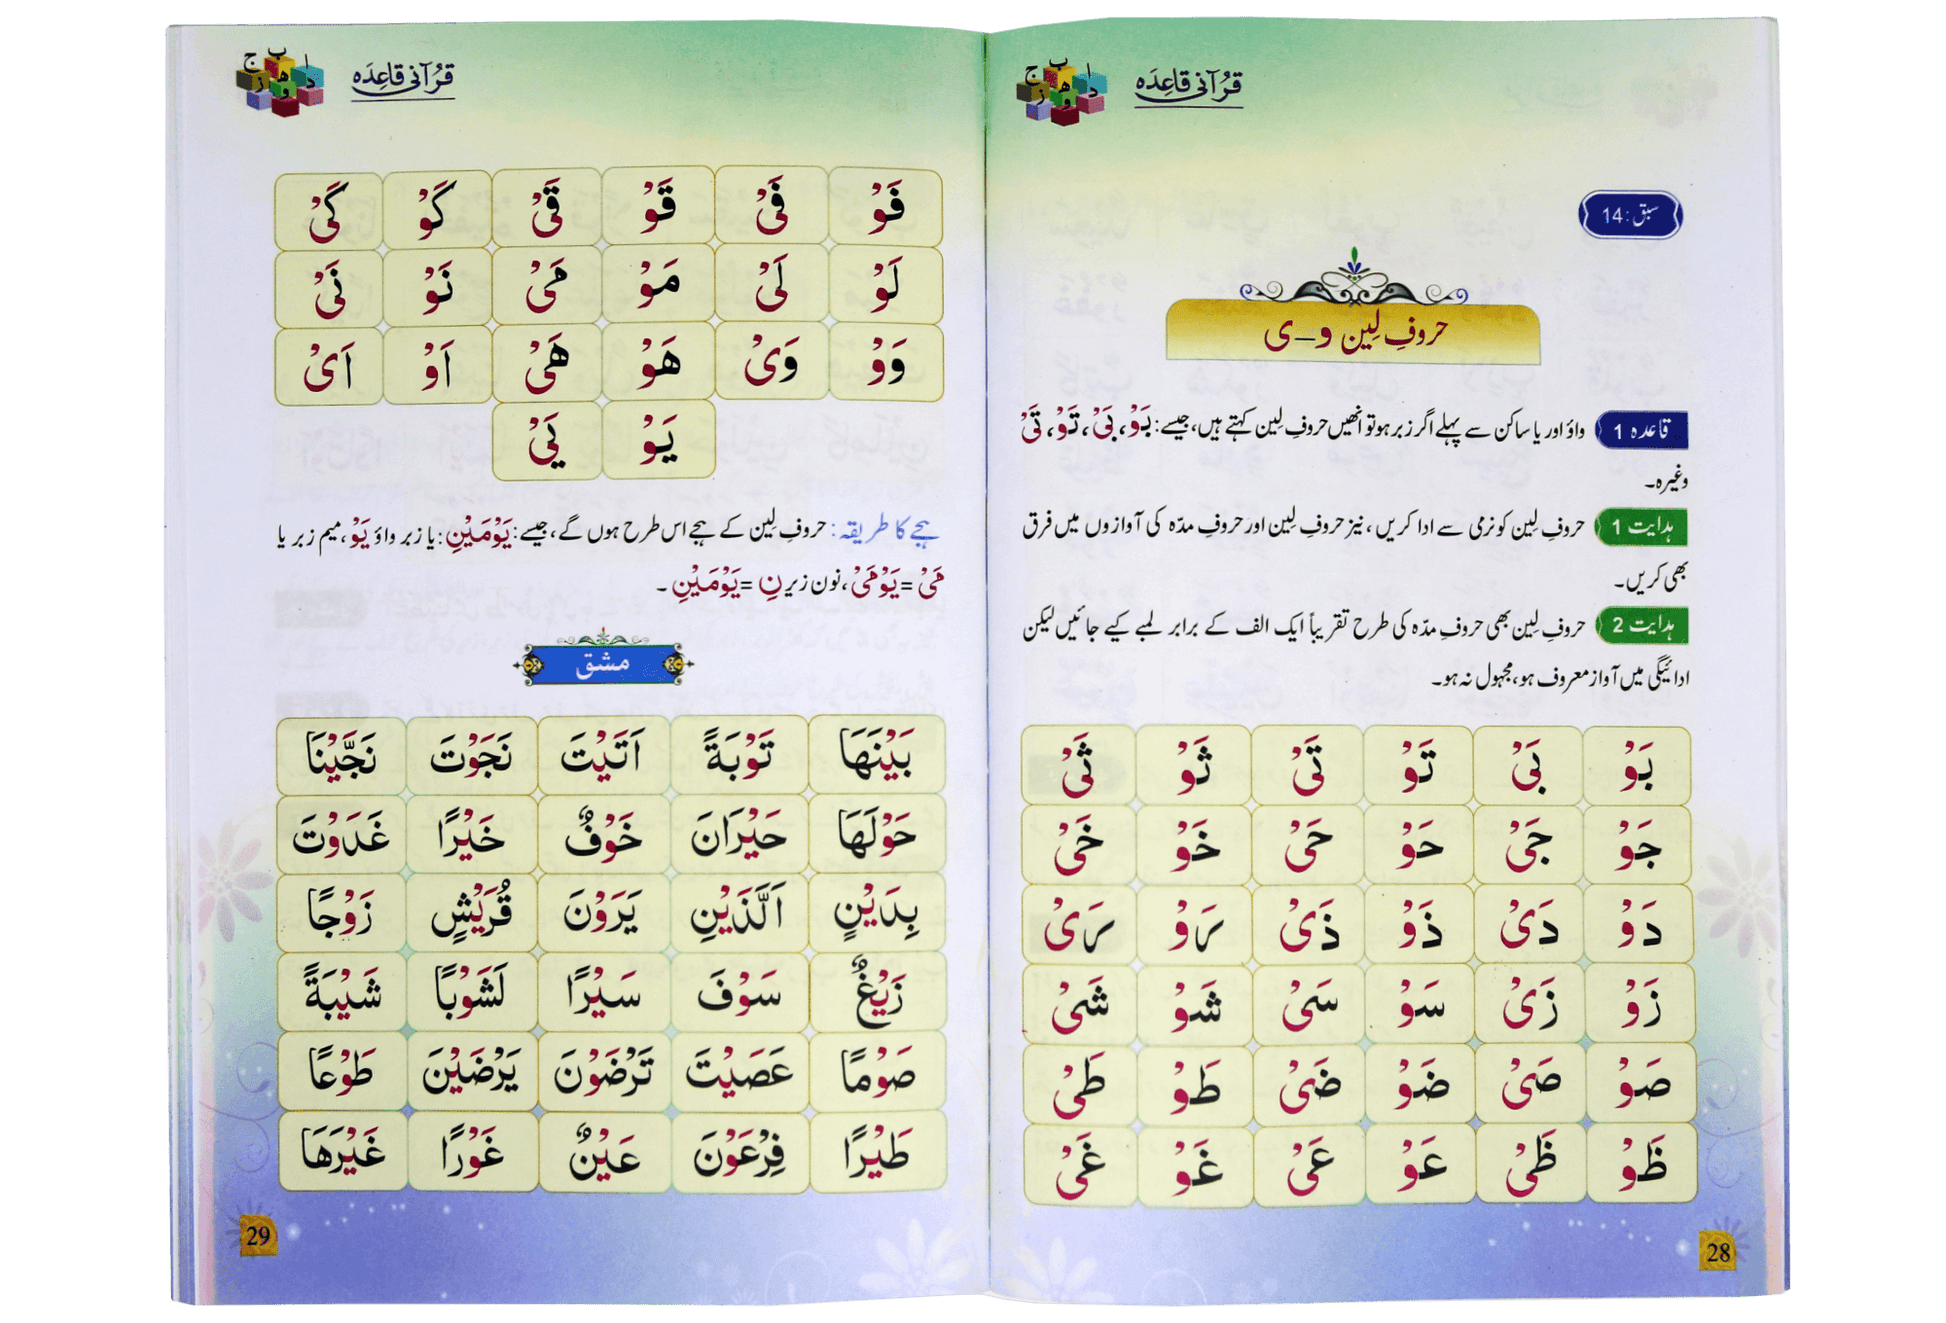 قرآنی قاعدہ
ا ب ج د ہ و ز
سبق: 14
حروفِ لِین و ـ ی
قاعدہ 1 واؤ اور یا ساکن سے پہلے اگر زبر ہو تو انھیں حروفِ لِین کہتے ہیں، جیسے: بَوْ، بَیْ، تَوْ، تَیْ
وغیرہ۔
ہدایت 1 حروفِ لِین کو نرمی سے ادا کریں، نیز حروفِ لِین اور حروفِ مدّہ کی آوازوں میں فرق
بھی کریں۔
ہدایت 2 حروفِ لِین بھی حروفِ مدّہ کی طرح تقریباً ایک الف کے برابر لمبے کیے جائیں لیکن
ادائیگی میں آواز معروف ہو، مجہول نہ ہو۔
بَوْ بَیْ تَوْ تَیْ ثَوْ ثَیْ
جَوْ جَیْ حَوْ حَیْ خَوْ خَیْ
دَوْ دَیْ ذَوْ ذَیْ رَوْ رَیْ
زَوْ زَیْ سَوْ سَیْ شَوْ شَیْ
صَوْ صَیْ ضَوْ ضَیْ طَوْ طَیْ
ظَوْ ظَیْ عَوْ عَیْ غَوْ غَیْ
28
قرآنی قاعدہ
ا ب ج د ہ و ز
فَوْ فَیْ قَوْ قَیْ كَوْ كَیْ
لَوْ لَیْ مَوْ مَیْ نَوْ نَیْ
وَوْ وَیْ هَوْ هَیْ اَوْ اَیْ
یَوْ یَیْ
ہجے کا طریقہ: حروفِ لِین کے ہجے اس طرح ہوں گے، جیسے: یَوْمَیْنِ: یا زبر واؤ یَوْ، میم زبر یا
مَیْ = یَوْمَیْ، نون زیر نِ = یَوْمَیْنِ۔
مشق
بَیْنَهَا تَوْبَةً اَتَیْتَ نَجَوْتَ نَجَّیْنَا
حَوْلَهَا حَیْرَانَ خَوْفٌ خَیْرًا غَدَوْتَ
بِدَیْنٍ اَلَّذَیْنِ یَرَوْنَ قُرَیْشٍ زَوْجًا
زَیْغٌ سَوْفَ سَیْرًا لَشَوْبًا شَیْبَةً
صَوْمًا عَصَیْتَ تَرْضَوْنَ یَرْضَیْنَ طَوْعًا
طَیْرًا فِرْعَوْنَ عَیْنٌ غَوْرًا غَیْرَهَا
29